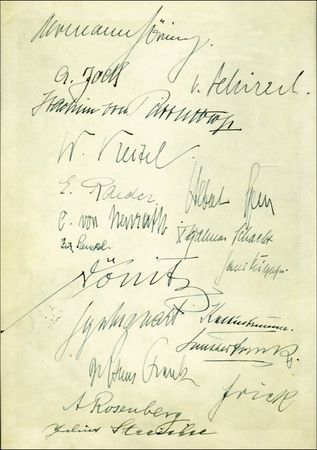 Hermann Göring.
A. Jodl v. Schirach.
Joachim von Ribbentrop
W. Keitel
E. Raeder Albert Speer
C. von Neurath Hjalmar Schacht
Dönitz
Seyß-Inquart Kaltenbrunner.
Dr Hans Frank
Frick
A Rosenberg
Julius Streicher